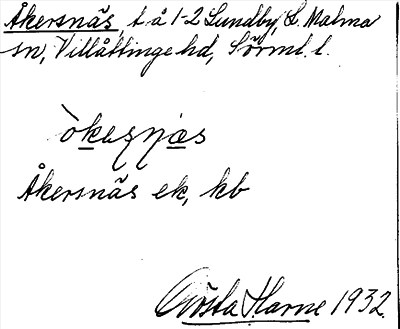 Åkersnäs, t å 1-2 Lundby, L. Malma
sn, Villåttinge hd, Sörml. l.
Åkersnäs ek, kb
Gösta Harne 1932.